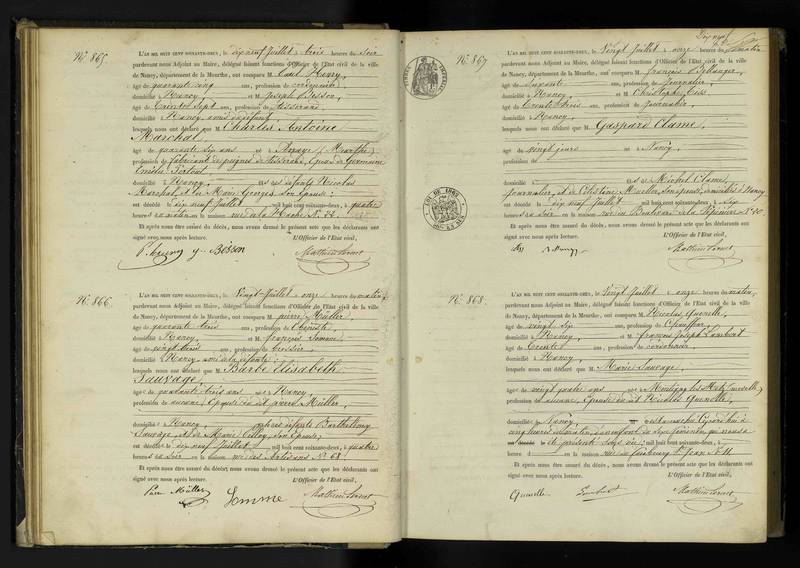 N° 865
L'AN MIL HUIT CENT SOIXANTE-DEUX, le dix neuf Juillet à trois heures du soir
pardevant nous Adjoint au Maire, délégué faisant fonctions d'Officier de l'Etat civil de la ville
de Nancy, département de la Meurthe, ont comparu M. Henry,
âgé de quarante cinq ans, profession de cordonnier,
domicilié à Nancy, et M. Joseph Besson,
âgé de trente sept ans, profession de tisserand,
domicilié à Nancy, amis du défunt,
lesquels nous ont déclaré que M. Charles Antoine
Marchal,
âgé de quarante six ans né à (Meurthe)
profession de fabricant de peignes de tisserand, époux de Germaine
Emélie
domicilié à Nancy, des défunts Nicolas
Marchal et de Marie Georges son épouse,
est décédé le dix neuf Juillet mil huit cent soixante-deux, à quatre
heures du matin en la maison rue de la N° 22.
Et après nous être assuré du décès, nous avons dressé le présent acte que les déclarants ont
signé avec nous après lecture. L'Officier de l'Etat civil,
Besson
N° 866
L'AN MIL HUIT CENT SOIXANTE-DEUX, le vingt Juillet à onze heures du matin,
pardevant nous Adjoint au Maire, délégué faisant fonctions d'Officier de l'Etat civil de la ville
de Nancy, département de la Meurthe, ont comparu M. pierre Müller,
âgé de quarante trois ans, profession de Ebéniste,
domicilié à Nancy, et M. françois Somme,
âgé de vingt huit ans, profession de
domicilié à Nancy, amis de la défunte,
lesquels nous ont déclaré que M. Barbe Elisabeth
Sauvage,
âgée de quarante trois ans née à Nancy,
profession de aucune, Epouse du dit pierre Müller,
domiciliée à Nancy, des défunts Barthélemy
Sauvage et de Marie son Epouse,
est décédée le dix neuf Juillet mil huit cent soixante-deux, à quatre
heures du soir en la maison rue des Artisans N° 68.
Et après nous être assuré du décès, nous avons dressé le présent acte que les déclarants ont
signé avec nous après lecture. L'Officier de l'Etat civil,
Müller Somme
N° 867
L'AN MIL HUIT CENT SOIXANTE-DEUX, le Vingt Juillet à onze heures du matin
pardevant nous Adjoint au Maire, délégué faisant fonctions d'Officier de l'Etat civil de la ville
de Nancy, département de la Meurthe, ont comparu M. françois Bellanger,
âgé de soixante ans, profession de Journalier,
domicilié à Nancy, et M. Christophe
âgé de trente trois ans, profession de Journalier,
domicilié à Nancy,
lesquels nous ont déclaré que M. Gaspard Clame,
âgé de vingt jours né à Nancy,
profession de
domicilié à de Michel Clame,
Journalier, et de Célestine Mueller, son épouse, domiciliés à Nancy
est décédé le dix neuf Juillet mil huit cent soixante-deux, à six
heures du soir en la maison rue du Boulevard de la Pépinière N° 10.
Et après nous être assuré du décès, nous avons dressé le présent acte que les déclarants ont
signé avec nous après lecture. L'Officier de l'Etat civil,
N° 868
L'AN MIL HUIT CENT SOIXANTE-DEUX, le vingt Juillet à onze heures du matin,
pardevant nous Adjoint au Maire, délégué faisant fonctions d'Officier de l'Etat civil de la ville
de Nancy, département de la Meurthe, ont comparu M. Nicolas Quenelle,
âgé de vingt six ans, profession de Chauffeur,
domicilié à Nancy, et M. françois Joseph Lambert
âgé de trente ans, profession de cordonnier
domicilié à Nancy,
lesquels nous ont déclaré que M. Marie Sauvage,
âgée de vingt quatre ans née à Montigny les Metz (Moselle)
profession de aucune, Epouse du dit Nicolas Quenelle,
domiciliée à Nancy, est accouchée
cinq heures du matin, d'un enfant du sexe féminin qui nous a
été présenté sans vie, mil huit cent soixante-deux, à
heures d en la maison rue du faubourg St Jean N° 11.
Et après nous être assuré du décès, nous avons dressé le présent acte que les déclarants ont
signé avec nous après lecture. L'Officier de l'Etat civil,
Quenelle Lambert